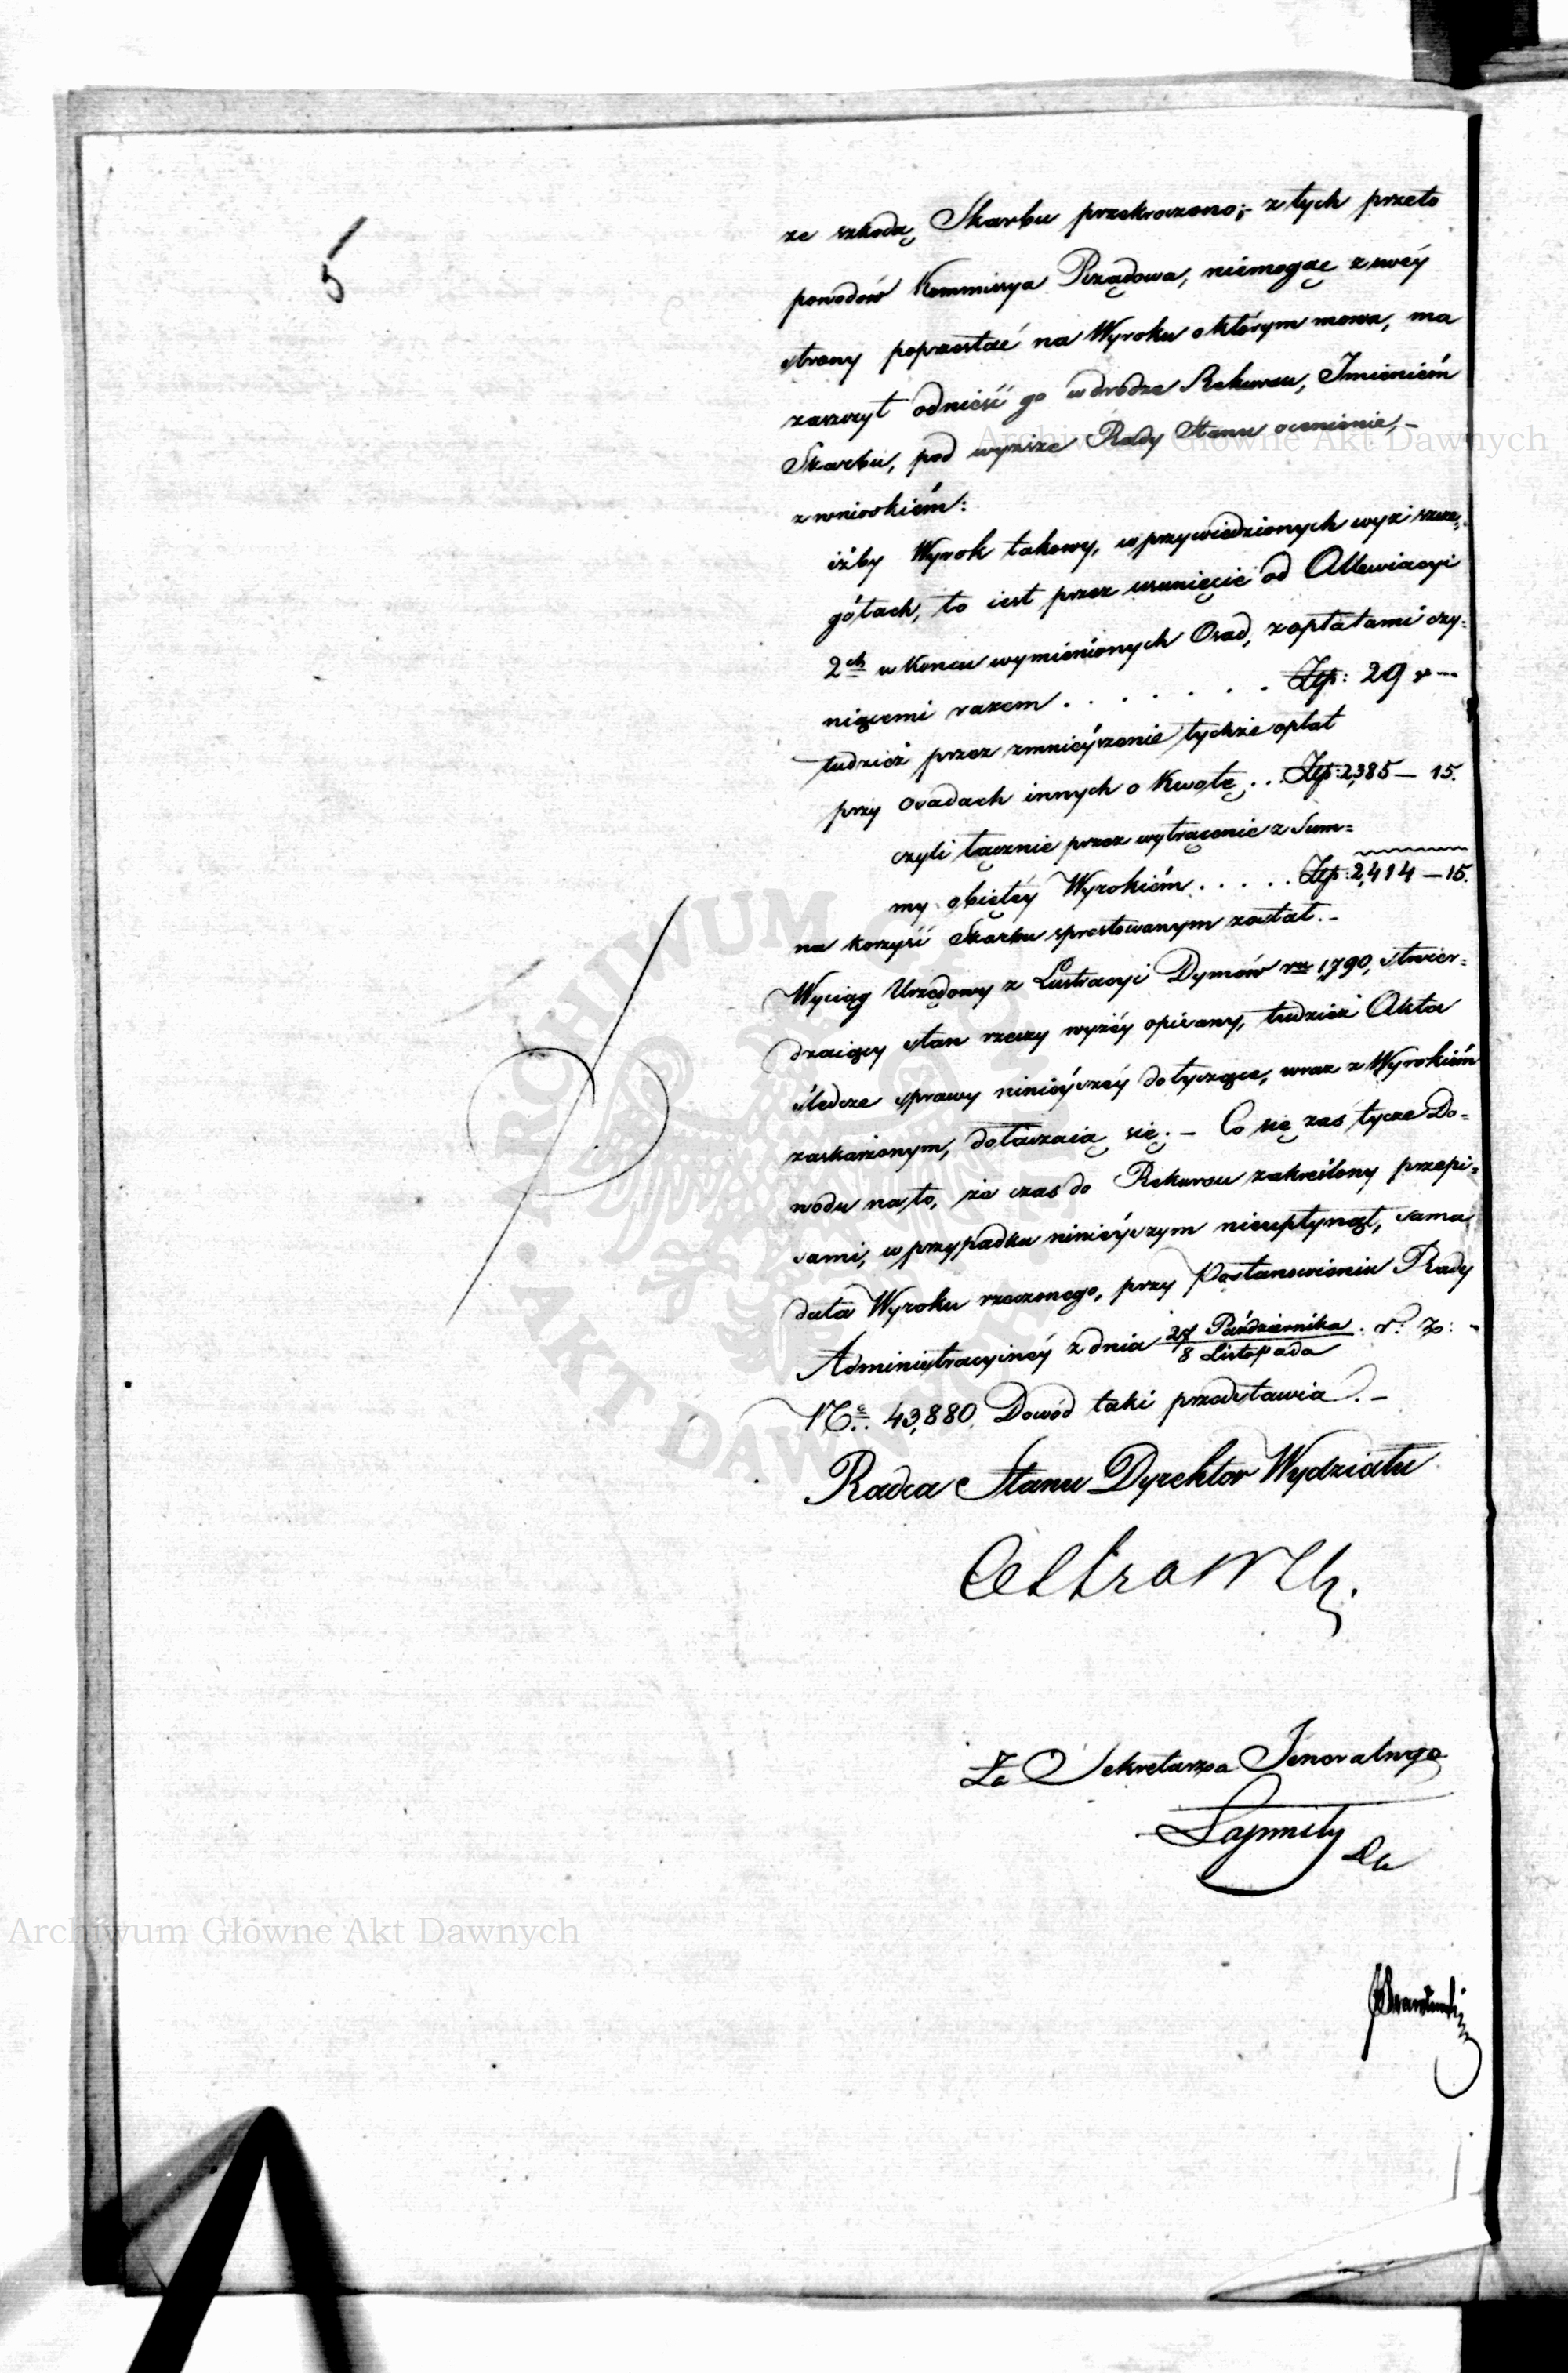 5
ze szkodą Skarbu przekroczono; – z tych przeto
powodów Kommissya Rządowa, niemogąc z swéy
strony poprzestać na Wyroku o którym mowa, ma
zaszczyt odnieść go w drodze Rekursu, Imieniém
Skarbu, pod wyższe Rady Stanu ocenienie, –
z wnioskiém:
iżby Wyrok takowy, w przywiedzionych wyżi szcze,
gółach, to iest przez usunięcie od Allewiacyi
2ch w końcu wymienionych Osad, z opłatami czy=
niącemi razem . . . . . . . Złp: 29 „ –
tudzież przez zmnieyszenie tychże opłat
przy Osadach innych o Kwotę . . . Złp: 2,385 – 15.
czyli łącznie przez wytrącenie z Sum=
my obiętéy Wyrokiém . . . . . Złp: 2,414 – 15.
na korzyść Skarbu sprostowanym został. –
Wyciąg Urzędowy z Lustracyi Dymów roz 1,790, stwier=
dzaiący stan rzeczy wyżéy opisany, tudzież Akta
śledcze sprawy ninieyszéy dotyczące, wraz z Wyrokiém
zaskarżonym, dołączaią się. – Co się zaś tycze Do=
wodu na to, że czas do Rekursu zakreślony przepi=
sami, w przypadku ninieyszym nieupłynął, sama
data Wyroku rzeczonego, przy Postanowieniu Rady
Administracyinéy z dnia 27 Października / 8 Listopada . r: z: –
No 43,880 Dowód taki przedstawia. –
Radca Stanu Dyrektor Wydziału
Za Sekretarza Jeneralnego
Archiwum Główne Akt Dawnych
Archiwum Główne Akt Dawnych
ARCHIWUM GŁÓWNE
AKT DAWNYCH